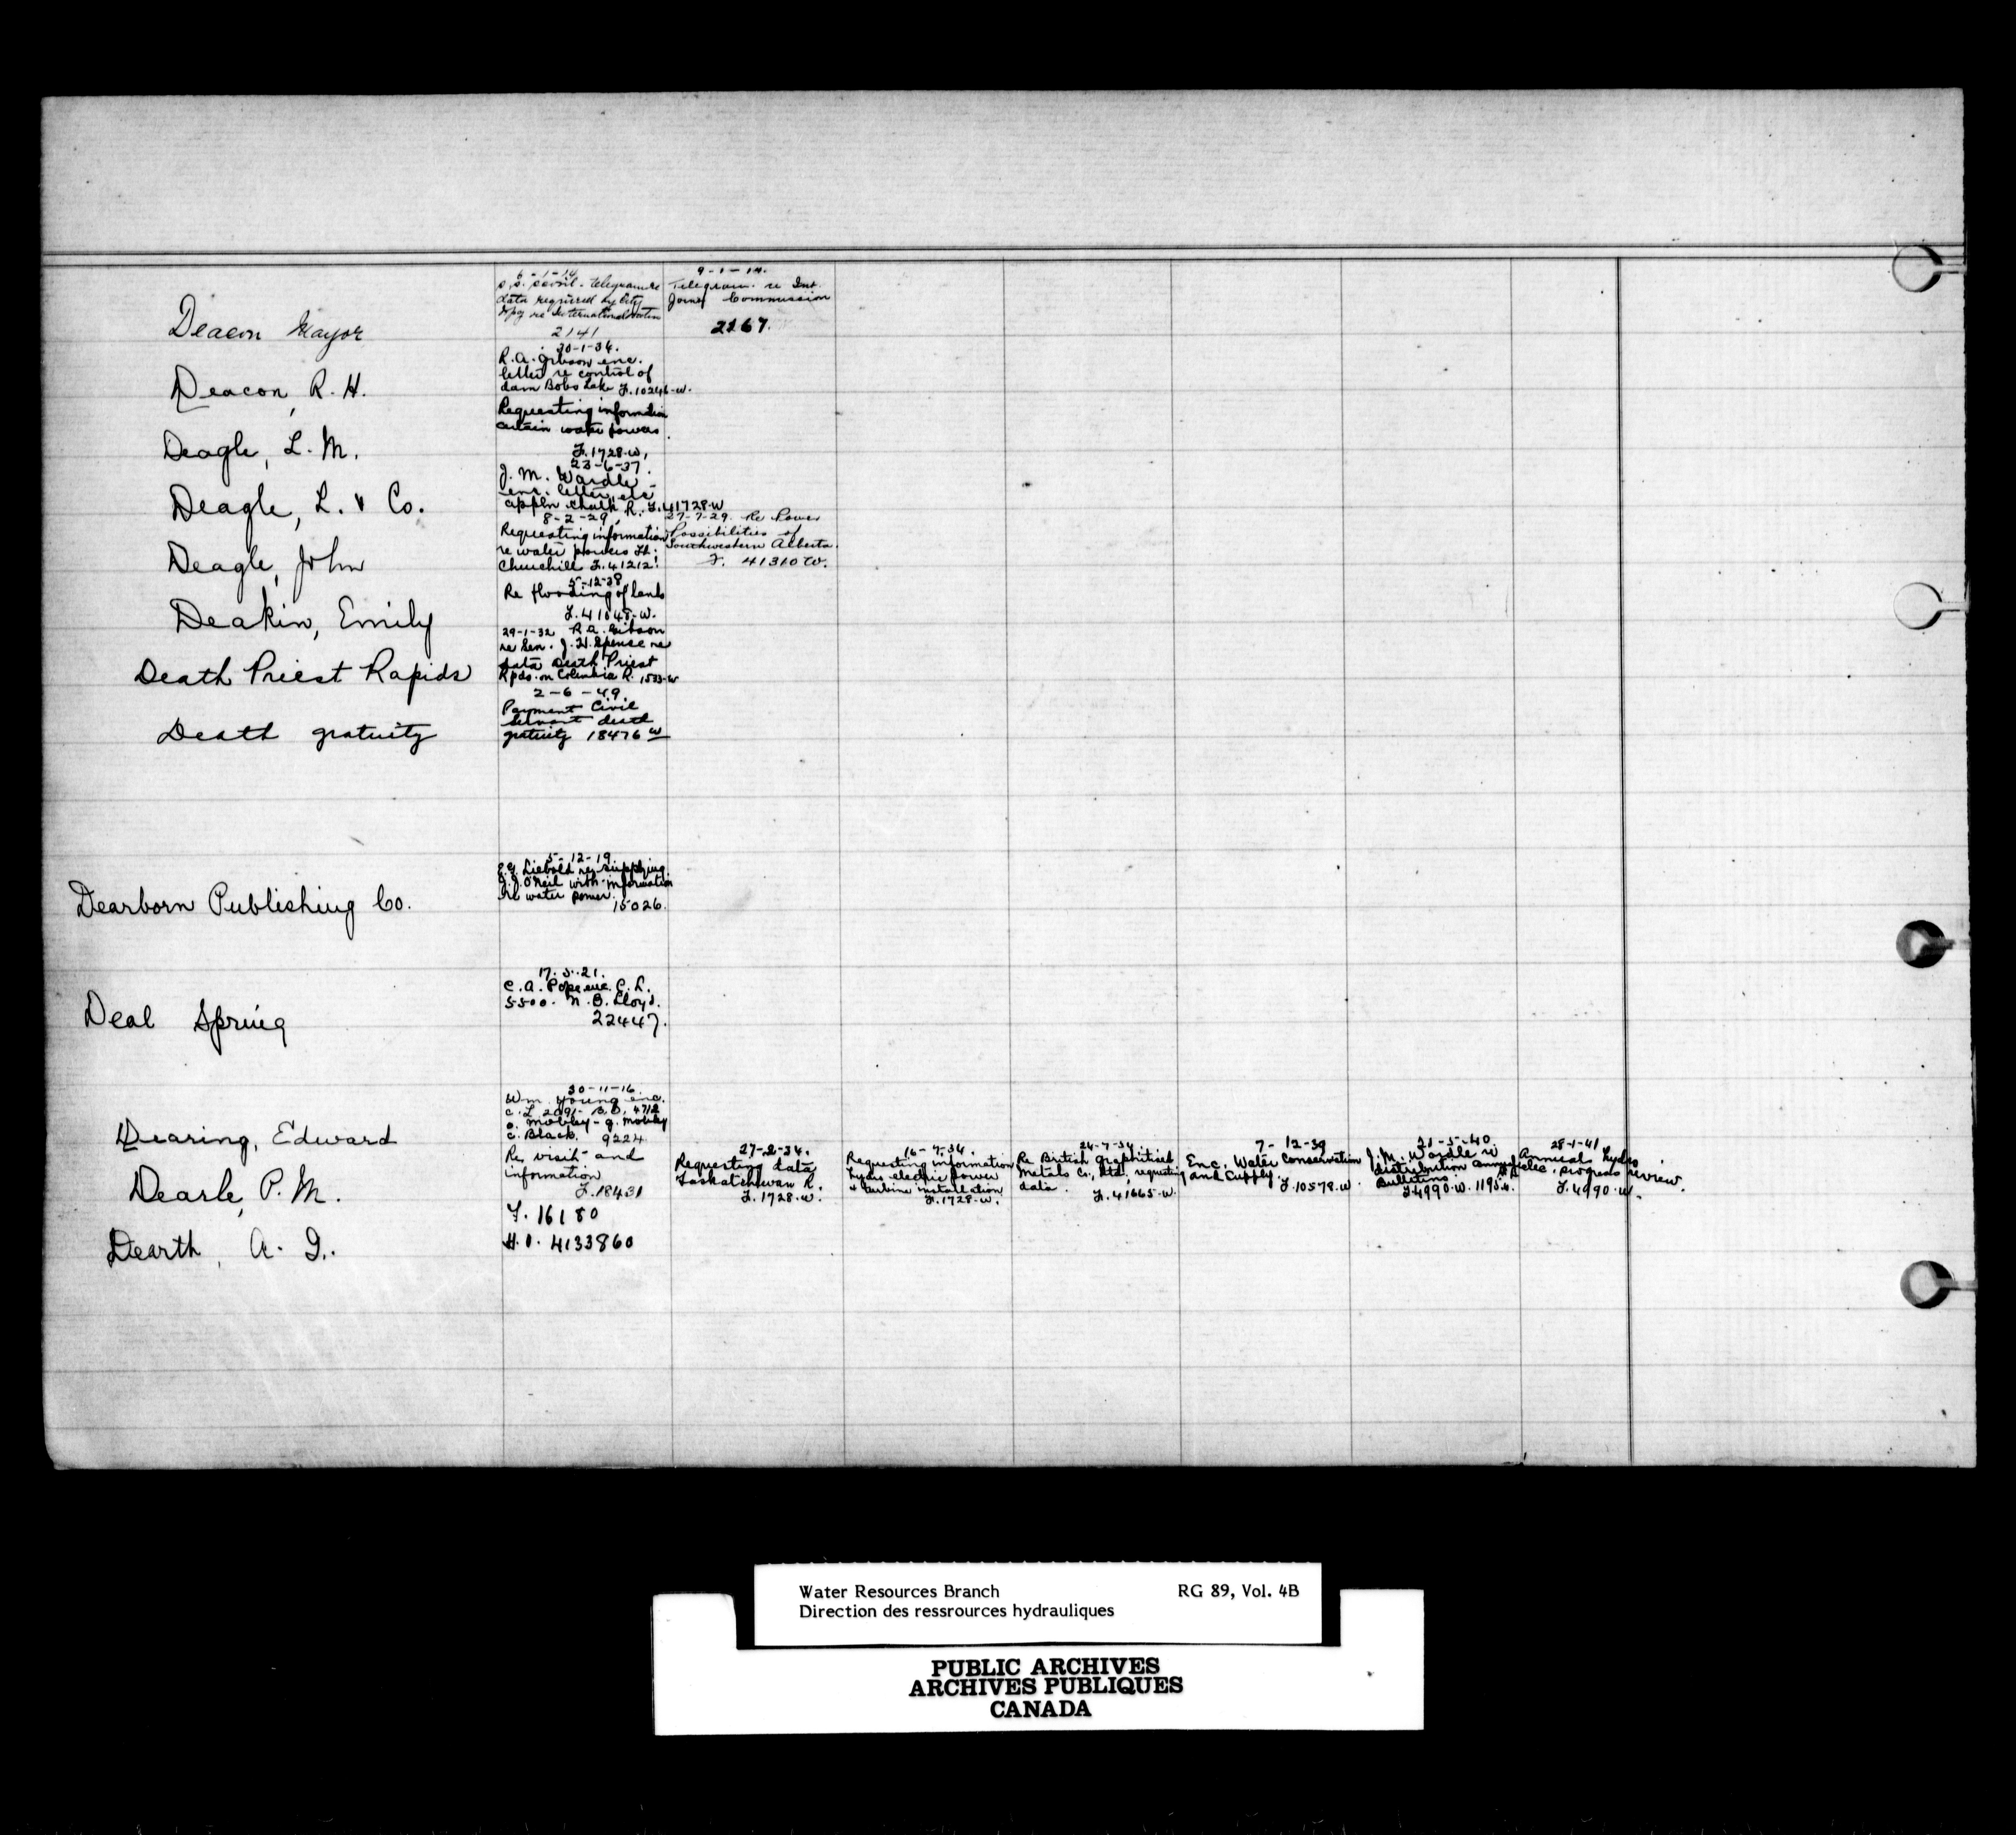 6-1-14
data required by City
Deacon Mayor
2141
9-1-14.
Telegram re Int.
Joint Commission
2267.
30-1-34.
R. A. Gibson enc.
letter re control of
dam Bobs Lake F.10246-W.
Deacon, R. H.
Requesting information
certain water powers
F.1728-W,
Deagle, L. M.
23-6-37.
J. M. Wardle
enc. letter, etc
appln Chalk R. F.41728-W
Deagle, L. & Co.
8-2-29,
Requesting information
re water powers Ft.
Churchill F.41212.
Deagle, John
27-7-29. Re Power
Possibilities of
Southwestern Alberta.
F. 41310 W.
5-12-38
Re flooding of lands
F.41048-W.
Deakin, Emily
29-1-32 R.A. Gibson
re Sen. J. H. Spence re
data Death Priest
Rpds. on Columbia R. 1533-W
Death Priest Rapids
2-6-49.
Payment Civil
Servant death
gratuity 18476 W
Death gratuity
5-12-19.
Liebold re supplying
J. J. O'Neil with information
re water power.
15026.
Dearborn Publishing Co.
17.5.21.
C. A. Pope enc. C. L.
5500. N. B. Lloyd.
22447.
Deal Spring
30-11-16.
Wm. Young enc.
C. L. 2091- B.O. 4712
O. Mobley - G. Mobley
C. Black. 9224
Dearing, Edward
Re visit and
information
F.18431
Dearle, P. M.
27-2-34.
Requesting data
Saskatchewan R.
F.1728-W.
16-7-34.
Requesting information
hydro electric power
& turbine installation
F.1728-W.
24-7-34.
Re British Graphitised
Metals Co., Ltd., requesting
data.
F.41665-W.
7-12-39
Enc. Water Conservation
and Supply.
F.10578-W.
21-5-40.
J. M. Wardle re
distribution annual
Bulletins
F.4990-W.
28-1-41
Annual hydro
elec. progress review.
F.4990-W.
F. 16180
H.O. 4133860
Dearth, A. I.
Water Resources Branch RG 89, Vol. 4B
Direction des ressrources hydrauliques
PUBLIC ARCHIVES
ARCHIVES PUBLIQUES
CANADA